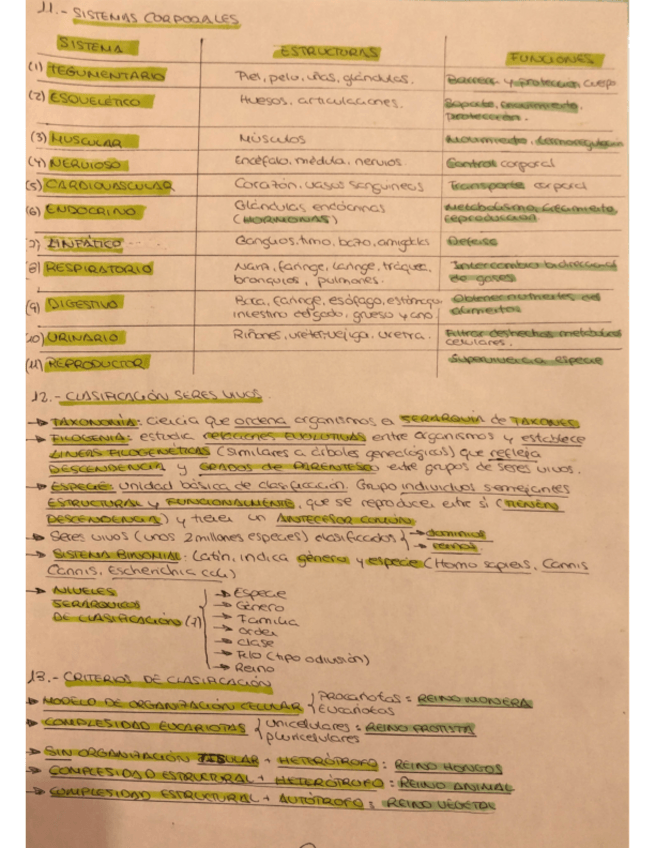 11.- SISTEMAS CORPORALES
SISTEMA ESTRUCTURAS FUNCIONES
(1) TEGUMENTARIO Piel, pelo, uñas, glándulas. Barrera y protección cuerpo
(2) ESQUELÉTICO Huesos, articulaciones. Soporte, movimiento,
protección.
(3) MUSCULAR Músculos Movimiento, termorregulación
(4) NERVIOSO Encéfalo, médula, nervios. Control corporal
(5) CARDIOVASCULAR Corazón, vasos sanguíneos Transporte corporal
(6) ENDOCRINO Glándulas endocrinas Metabolismo, crecimiento
(HORMONAS) reproducción
7) LINFÁTICO Ganglios, timo, bazo, amígdalas Defensa
8) RESPIRATORIO Nariz, faringe, laringe, tráquea, Intercambio bidireccional
bronquios, pulmones. de gases
(9) DIGESTIVO Boca, faringe, esófago, estómago, Obtener nutrientes del
intestino delgado, grueso y ano alimentos
10) URINARIO Riñones, uréter, vejiga, uretra. Filtrar deshechos metabólicos
celulares.
(11) REPRODUCTOR Supervivencia especie
12.- CLASIFICACIÓN SERES VIVOS.
→ TAXONOMÍA: ciencia que ordena organismos en JERARQUÍA de TAXONES
→ FILOGENIA: estudia relaciones EVOLUTIVAS entre organismos y establece
LINEAS FILOGENÉTICAS (similares a árboles genealógicos) que refleja
DESCENDENCIA y GRADOS de PARENTESCO entre grupos de seres vivos.
→ ESPECIE: unidad básica de clasificación. Grupo individuos semejantes
ESTRUCTURAL y FUNCIONALMENTE, que se reproducen entre sí (TIENEN
DESCENDENCIA) y tienen un ANTECESOR COMÚN
→ Seres vivos (unos 2 millones especies) clasificados → dominios
→ reinos
→ SISTEMA BINOMIAL: Latín, indica género y especie (Homo sapiens, Cannis
Cannis, Escherichia coli)
→ NIVELES → Especie
JERÁRQUICOS → Género
DE CLASIFICACIÓN (7) → Familia
→ Orden
→ Clase
→ Filo (tipo o división)
→ Reino
13.- CRITERIOS DE CLASIFICACIÓN
→ MODELO DE ORGANIZACIÓN CELULAR Procariotas: REINO MONERA
Eucariotas
→ COMPLEJIDAD EUCARIOTAS Unicelulares: REINO PROTISTA
pluricelulares
→ SIN ORGANIZACIÓN TISULAR + HETERÓTROFO: REINO HONGOS
→ COMPLEJIDAD ESTRUCTURAL + HETERÓTROFO: REINO ANIMAL
→ COMPLEJIDAD ESTRUCTURAL + AUTÓTROFO: REINO VEGETAL